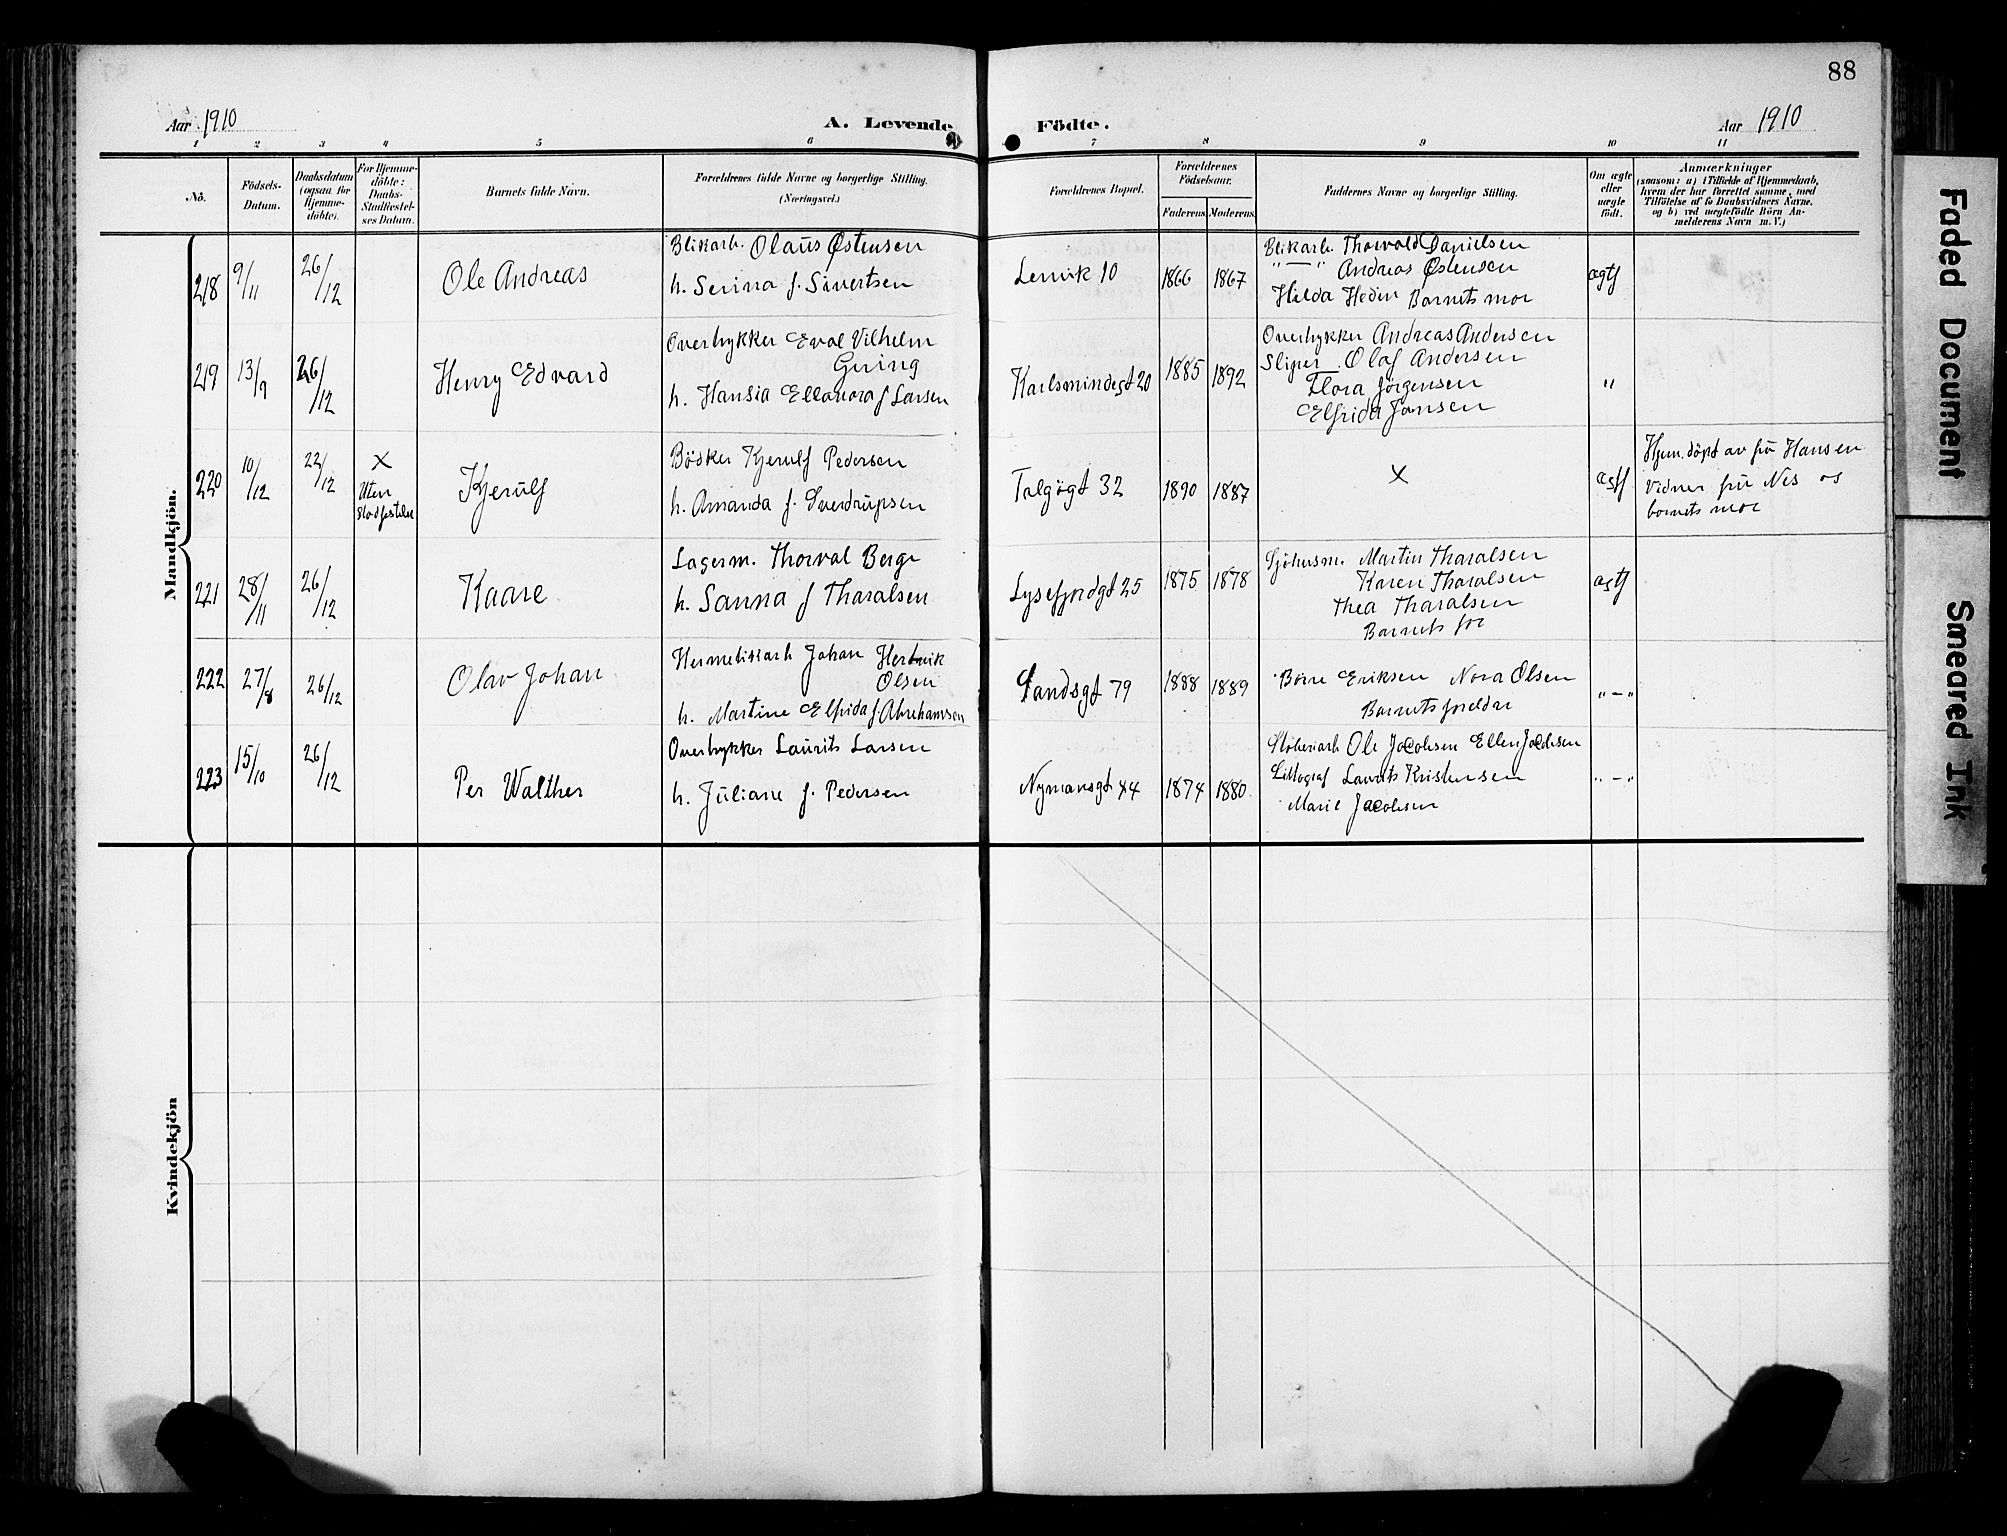 88
Aar 1910
A. Levende Födte.
Aar 1910
1 2 3 4 5 6 7 8 9 10 11
No.
Födsels-Datum.
Daabsdatum (ogsaa for Hjemme-döbte).
For Hjemme-döbte: Daabs-Stadfæstel-ses Datum.
Barnets fulde Navn.
Forældrenes fulde Navne og borgerlige Stilling. (Næringsvei.)
Forældrenes Bopæl.
Forældrenes Födselsaar.
Faderens. Moderens.
Faddernes Navne og borgerlige Stilling.
Om ægte eller uægte födt.
Anmærkninger
(saasom: a) i Tilfælde af Hjemmedaab, hvem der har forrettet samme, med Tilföielse af to Daabsvidners Navne. og b) ved uægtefödte Börn An-melderens Navn m. V.)
Mandkjön.
218 9/11 26/12 Ole Andreas
Blikarb. Olaus Østensen
h. Serina f. Sivertsen
Lervik 10 1866 1867
Blikarb. Thorvald Danielsen
" — " Andreas Østensen
Hilda Hedin Barnets mor
ægtf
219 13/9 26/12 Henry Edvard
Overhykker Eval Vilhelm
Gering
h. Hansia Ellanora f Larsen
Karlsmindegt 20 1885 1892
Overhykker Andreas Andersen
Sliper Olaf Andersen
Flora Jørgensen
Elfrida Jansen
"
220 10/12 22/12 X Uten Stadfestelse Kjerulf
Bödker Kjerulf Pedersen
h. Amanda f. Sverdrupsen
Talgögt 32 1890 1887
X
ægtf
Hjem.döpt av fru Hansen
Vidner fru Nes og
barnets mor
221 28/11 26/12 Kaare
Lagerm. Thorval Berge
h. Sanna f Tharalsen
Lysefjordgt 25 1875 1878
Martin Tharalsen
Karen Tharalsen
Thea Tharalsen
Barnets far
ægtf
222 27/8 26/12 Olav Johan
Hermetikkarb Johan Hertvik
Olsen
h. Martine Elfrida f. Abrahamsen
Sandsgt 79 1888 1889
Börre Eriksen Nora Olsen
Barnets foreldre
" — "
223 15/10 26/12 Per Walther
Overhykker Laurits Larsen
h. Juliane f. Pedersen
Nymansgt 44 1874 1880
Stöberiarb Ole Jacobsen Ellen Jacobsen
Littograf Laurits Kristensen
Marie Jacobsen
" — "
Kvindekjön
Faded Document
Smeared Ink